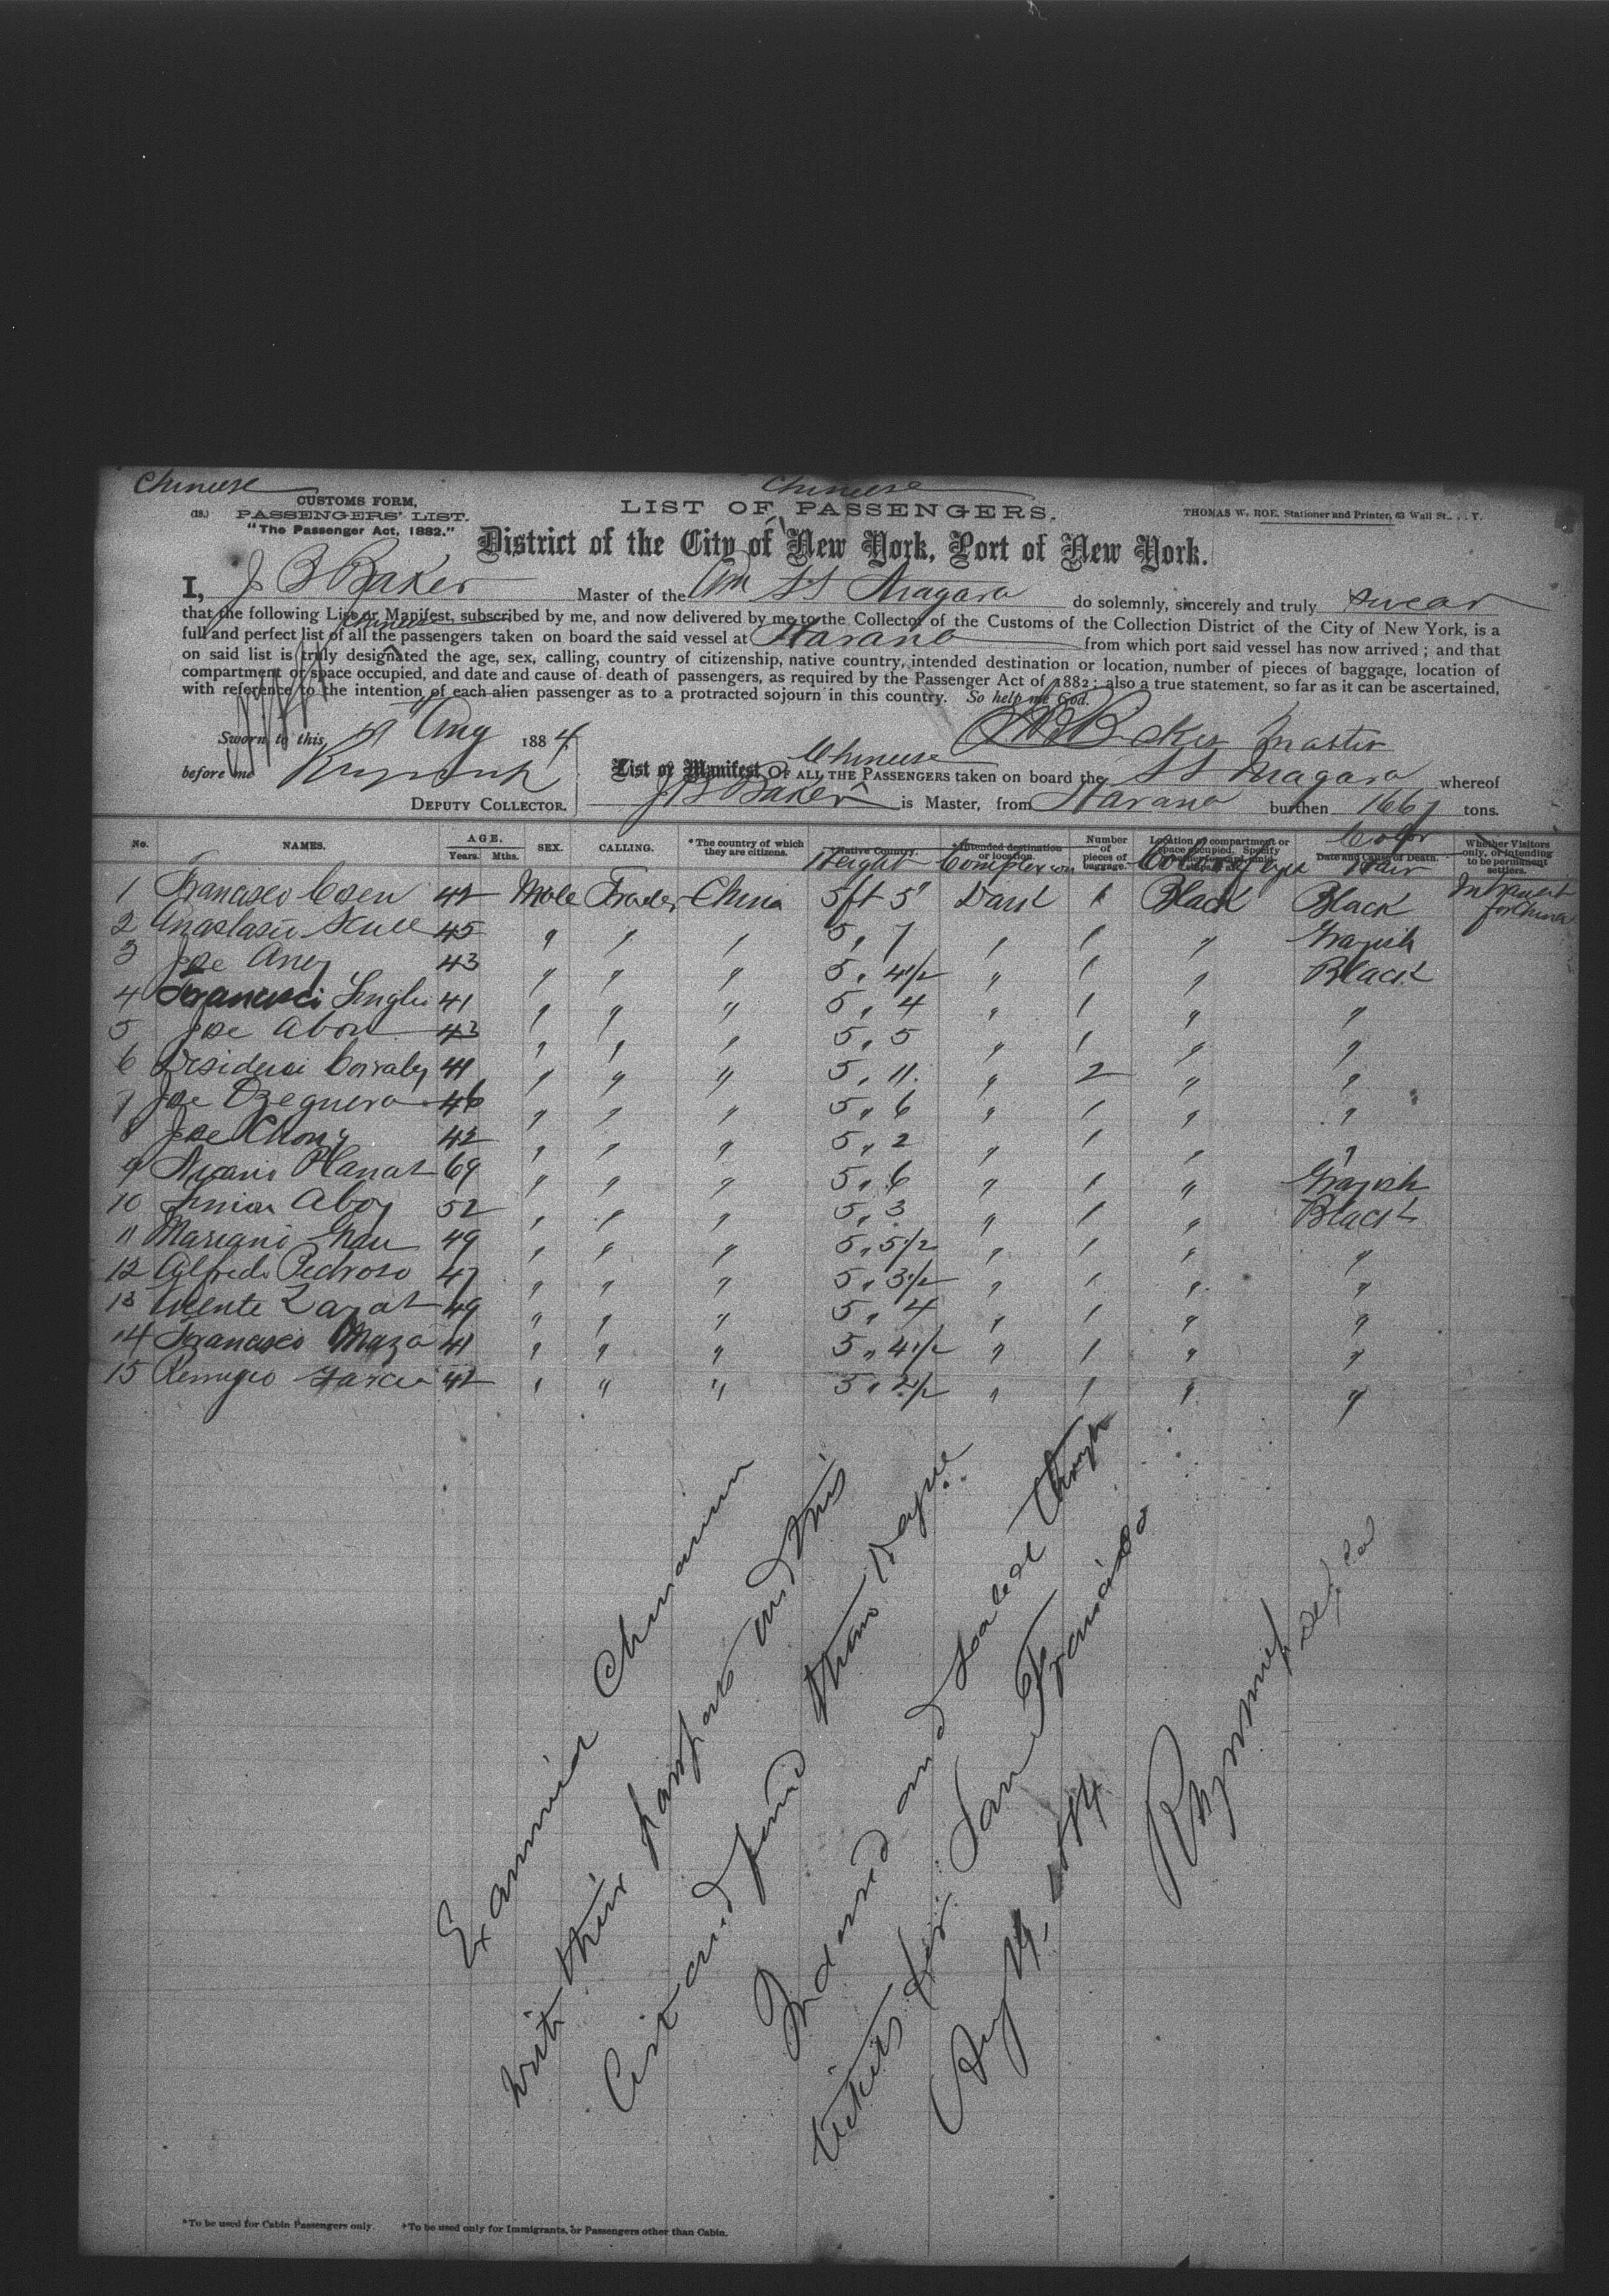 Chinese
Chinese
CUSTOMS FORM,
(18.) PASSENGERS' LIST.
"The Passenger Act, 1882."
LIST OF PASSENGERS.
THOMAS W. ROE, Stationer and Printer, 63 Wall St.
District of the City of New York, Port of New York.
I, J B Baker Master of the Am SS Niagara do solemnly, sincerely and truly swear
that the following List or Manifest, subscribed by me, and now delivered by me to the Collector of the Customs of the Collection District of the City of New York, is a
Chinese
full and perfect list of all the passengers taken on board the said vessel at Havana from which port said vessel has now arrived ; and that
on said list is truly designated the age, sex, calling, country of citizenship, native country, intended destination or location, number of pieces of baggage, location of
compartment or space occupied, and date and cause of death of passengers, as required by the Passenger Act of 1882; also a true statement, so far as it can be ascertained,
with reference to the intention of each alien passenger as to a protracted sojourn in this country. So help me God.
Sworn to this Aug 1884 J B Baker Master
before me
DEPUTY COLLECTOR.
Chinese
List or Manifest OF ALL THE PASSENGERS taken on board the SS Niagara whereof
J B Baker is Master, from Havana burthen 1667 tons.
No. NAMES. AGE. Years. Mths. SEX. CALLING. *The country of which they are citizens. Native Country. Intended destination or location. Number of pieces of baggage. Location of compartment or space occupied. Date and Cause of Death. Whether Visitors only, or intending to be permanent settlers.
Height Complexion Color of Eyes Color Hair
1 Francisco 42 Male Trader China 5ft 5" Dark 1 Black Black In transit for China
2 45 " " " 5 " 7 " 1 " Grayish
3 Jose 43 " " " 5 " 4 1/2 " 1 " Black
4 Francisco 41 " " " 5 " 4 " 1 " "
5 Jose Abon 43 " " " 5 " 5 " 1 " "
6 41 " " " 5 " 11 " 2 " "
7 Jose Ozeguera 46 " " " 5 " 6 " 1 " "
8 Jose Chong 42 " " " 5 " 2 " 1 " "
9 Planat 69 " " " 5 " 6 " 1 " Grayish
10 Aboy 52 " " " 5 " 3 " 1 " Black
11 Mariano 49 " " " 5 " 5 1/2 " 1 " "
12 Alfredo Pedroso 47 " " " 5 " 3 1/2 " 1 " "
13 Vicente 49 " " " 5 " 4 " 1 " "
14 Francisco Maza 41 " " " 5 " 4 1/2 " 1 " "
15 Remigio Garcia 42 " " " 5 " 2 1/2 " 1 " "
Examined Chinamen
with their passports and this
List and find them Regular.
Indorsed and sealed through
tickets for San Francisco
Aug 14, 1884
*To be used for Cabin Passengers only. †To be used only for Immigrants, or Passengers other than Cabin.